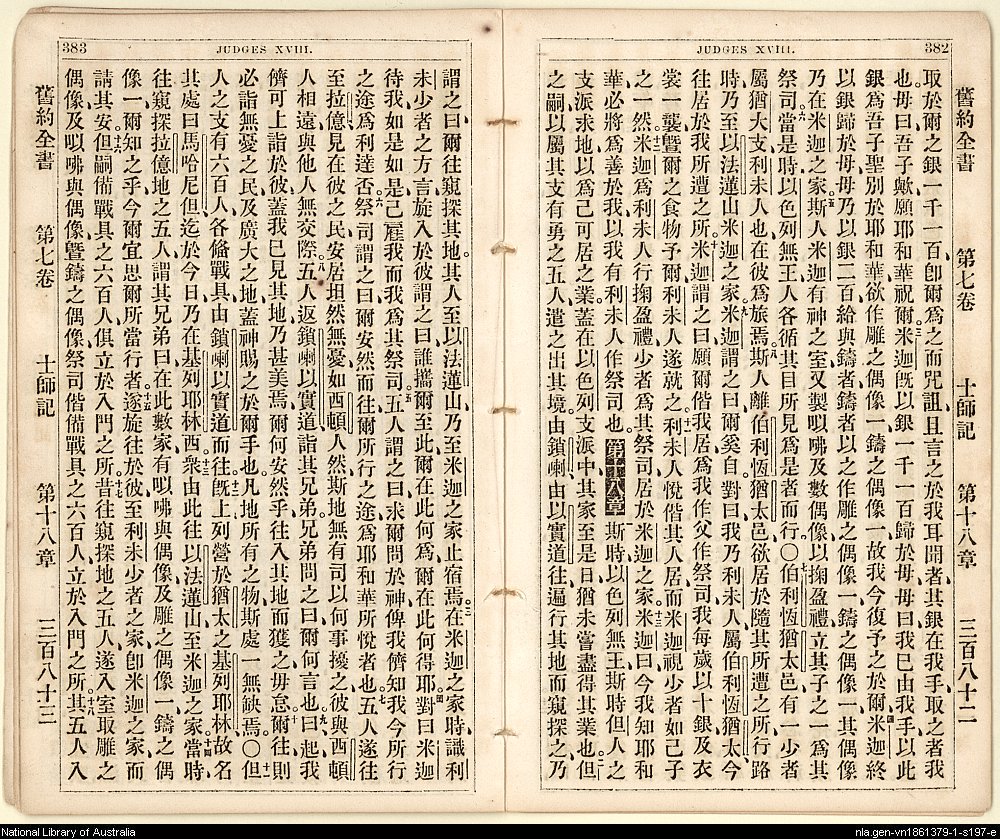 382
JUDGES XVIII.
舊約全書 第七卷 士師記 第十八章 三百八十二
取於爾之銀一千一百、卽爾爲之而咒詛、且言之於我耳聞者、其銀在我手、取之者我
也、母曰、吾子歟、願耶和華祝爾、米迦旣以銀一千一百歸於母、母曰、我已由我手以此
銀爲吾子聖別於耶和華、欲作雕之偶像、一鑄之偶像、一故我今復予之於爾、米迦終
以銀歸於母、母乃以銀二百給與鑄者、鑄者以之作雕之偶像、一鑄之偶像、一其偶像
乃在米迦之家、斯人米迦有神之室、又製以咈及數偶像、以掬盈禮立其子之一、爲其
祭司、當是時以色列無王、人各循其目所見爲是者而行。○伯利恆猶太邑有一少者
屬猶大支、利未人也、在彼爲旅焉、斯人離伯利恆猶太邑、欲居於隨其所遭之所、行路
時、乃至以法蓮山米迦之家、米迦謂之曰、爾奚自、對曰、我乃利未人、屬伯利恆猶太、今
往居於我所遭之所、米迦謂之曰、願爾偕我居、爲我作父作祭司、我每歲以十銀及衣
裳一襲、曁爾之食物予爾、利未人遂就之、利未人悅偕其人居、而米迦視少者如己子
之一然、米迦爲利未人行掬盈禮、少者爲其祭司、居於米迦之家、米迦曰、今我知耶和
華必將爲善於我、以我有利未人作祭司也。第十八章 斯時以色列無王、斯時但人之
支派求地以爲己可居之業、蓋在以色列支派中、其家至是日猶未嘗盡得其業也、但
之嗣、以屬其支有勇之五人、遣之出其境、由鎖喇、由以實道、往遍行其地而窺探之、乃
383
JUDGES XVIII.
謂之曰、爾往窺探其地、其人至以法蓮山、乃至米迦之家、止宿焉、在米迦之家時、識利
未少者之方言、旋入於彼、謂之曰、誰攜爾至此、爾在此何爲、爾在此何得耶、對曰、米迦
待我如是如是、己雇我、而我爲其祭司、五人謂之曰、求爾問於神、俾我儕知我今所行
之途、爲利達否、祭司謂之曰、爾安然而往、爾所行之途、爲耶和華所悅者也、五人遂往
至拉億、見在彼之民、安居坦然無憂、如西頓人然、斯地無有司以何事擾之、彼與西頓
人相遠、與他人無交際、五人返鎖喇、以實道、詣其兄弟、兄弟問之曰、爾何言也、曰、起、我
儕可上詣於彼、蓋我已見其地、乃甚美焉、爾何安然乎、往入其地而獲之、毋怠、爾往、則
必詣無憂之民及廣大之地、蓋神賜之於爾手也、凡地所有之物、斯處一無缺焉。○但
人之支、有六百人、各備戰具、由鎖喇以實道而往、旣上、列營於猶太之基列耶林、故名
其處曰馬哈尼但、迄於今日、乃在基列耶林西、衆由此往以法蓮山、至米迦之家、當時
往窺探拉億地之五人、謂其兄弟曰、在此數家有以咈與偶像及雕之偶像、一鑄之偶
像、一爾知之乎、今爾宜思爾所當行者、遂旋往於彼、至利未少者之家、卽米迦之家、而
請其安、但嗣備戰具之六百人、俱立於入門之所、昔往窺探地之五人、遂入室取雕之
偶像及以咈與偶像曁鑄之偶像、祭司偕備戰具之六百人、立於入門之所、其五人入
舊約全書 第七卷 士師記 第十八章 三百八十三
National Library of Australia
nla.gen-vn1861379-1-s197-e